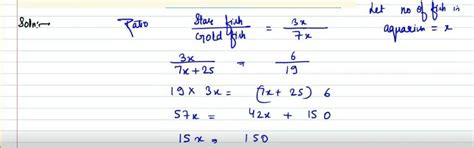 Soln:- Ratio Star fish / Gold fish = 3x / 7x
Let no of fish in
aquarium = x
3x / 7x + 25 = 6 / 19
19 × 3x = (7x + 25) 6
57x = 42x + 150
15x = 150